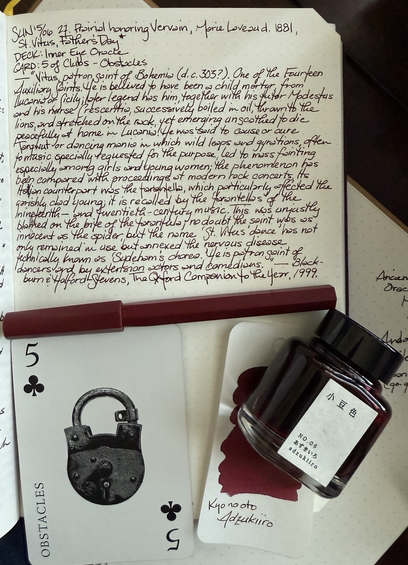 SUN 15/06 27 Prairial honoring Vervain, Marie Laveau d. 1881,
St. Vitus, Father's Day*
DECK: Inner Eye Oracle
CARD: 5 of Clubs - Obstacles
"Vitus, patron saint of Bohemia (d. c. 303?). One of the Fourteen
Auxiliary Saints. He is believed to have been a child martyr from
Lucania or Sicily; later legend has him, together with his tutor Modestus
and his nurse Crescentia, successively boiled in oil, thrown to the
lions, and stretched on the rack, yet emerging unscathed to die
peacefully at home in Lucania. He was said to cause or cure
'Tanzwut' or dancing mania in which wild leaps and gyrations, often
to music specially requested for the purpose, led to mass fainting
especially among girls and young women; the phenomenon has
been compared with proceedings at modern rock concerts. Its
Italian counterpart was the tarantella, which particularly affected the
garishly clad young; it is recalled by the tarantellas of the
nineteenth- and twentieth-century music. This was unjustly
blamed on the bite of the tarantula; no doubt the saint was as
innocent as the spider, but the name 'St Vitus' dance' has not
only remained in use but annexed the nervous disease
technically known as Sydenham's chorea. He is patron saint of
dancers and by extension actors and comedians." — Black-
burn & Holford-Strevens, The Oxford Companion to the Year, 1999.
5
OBSTACLES
5
小豆色
NO.06
あずきいろ
adzukiiro
Kyonooto
Adzukiiro